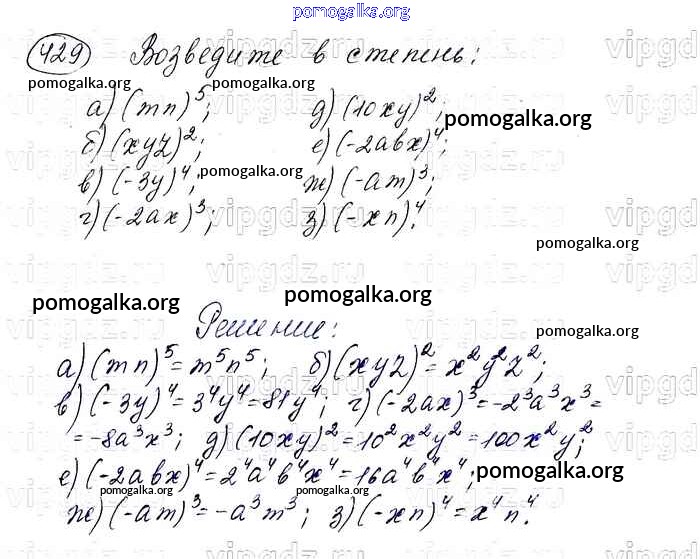 pomogalka.org
429) Возведите в степень:
pomogalka.org pomogalka.org
а) (mn)⁵; д) (10xy)²;
pomogalka.org
б) (xyz)²; е) (-2abx)⁴;
pomogalka.org
в) (-3y)⁴; ж) (-am)³;
г) (-2ax)³; з) (-xn)⁴.
pomogalka.org
pomogalka.org pomogalka.org
Решение:
pomogalka.org
а) (mn)⁵ = m⁵n⁵; б) (xyz)² = x²y²z²;
в) (-3y)⁴ = 3⁴y⁴ = 81y⁴; г) (-2ax)³ = -2³a³x³ =
= -8a³x³; д) (10xy)² = 10²x²y² = 100x²y²;
е) (-2abx)⁴ = 2⁴a⁴b⁴x⁴ = 16a⁴b⁴x⁴; pomogalka.org
pomogalka.org pomogalka.org
ж) (-am)³ = -a³m³; з) (-xn)⁴ = x⁴n⁴.